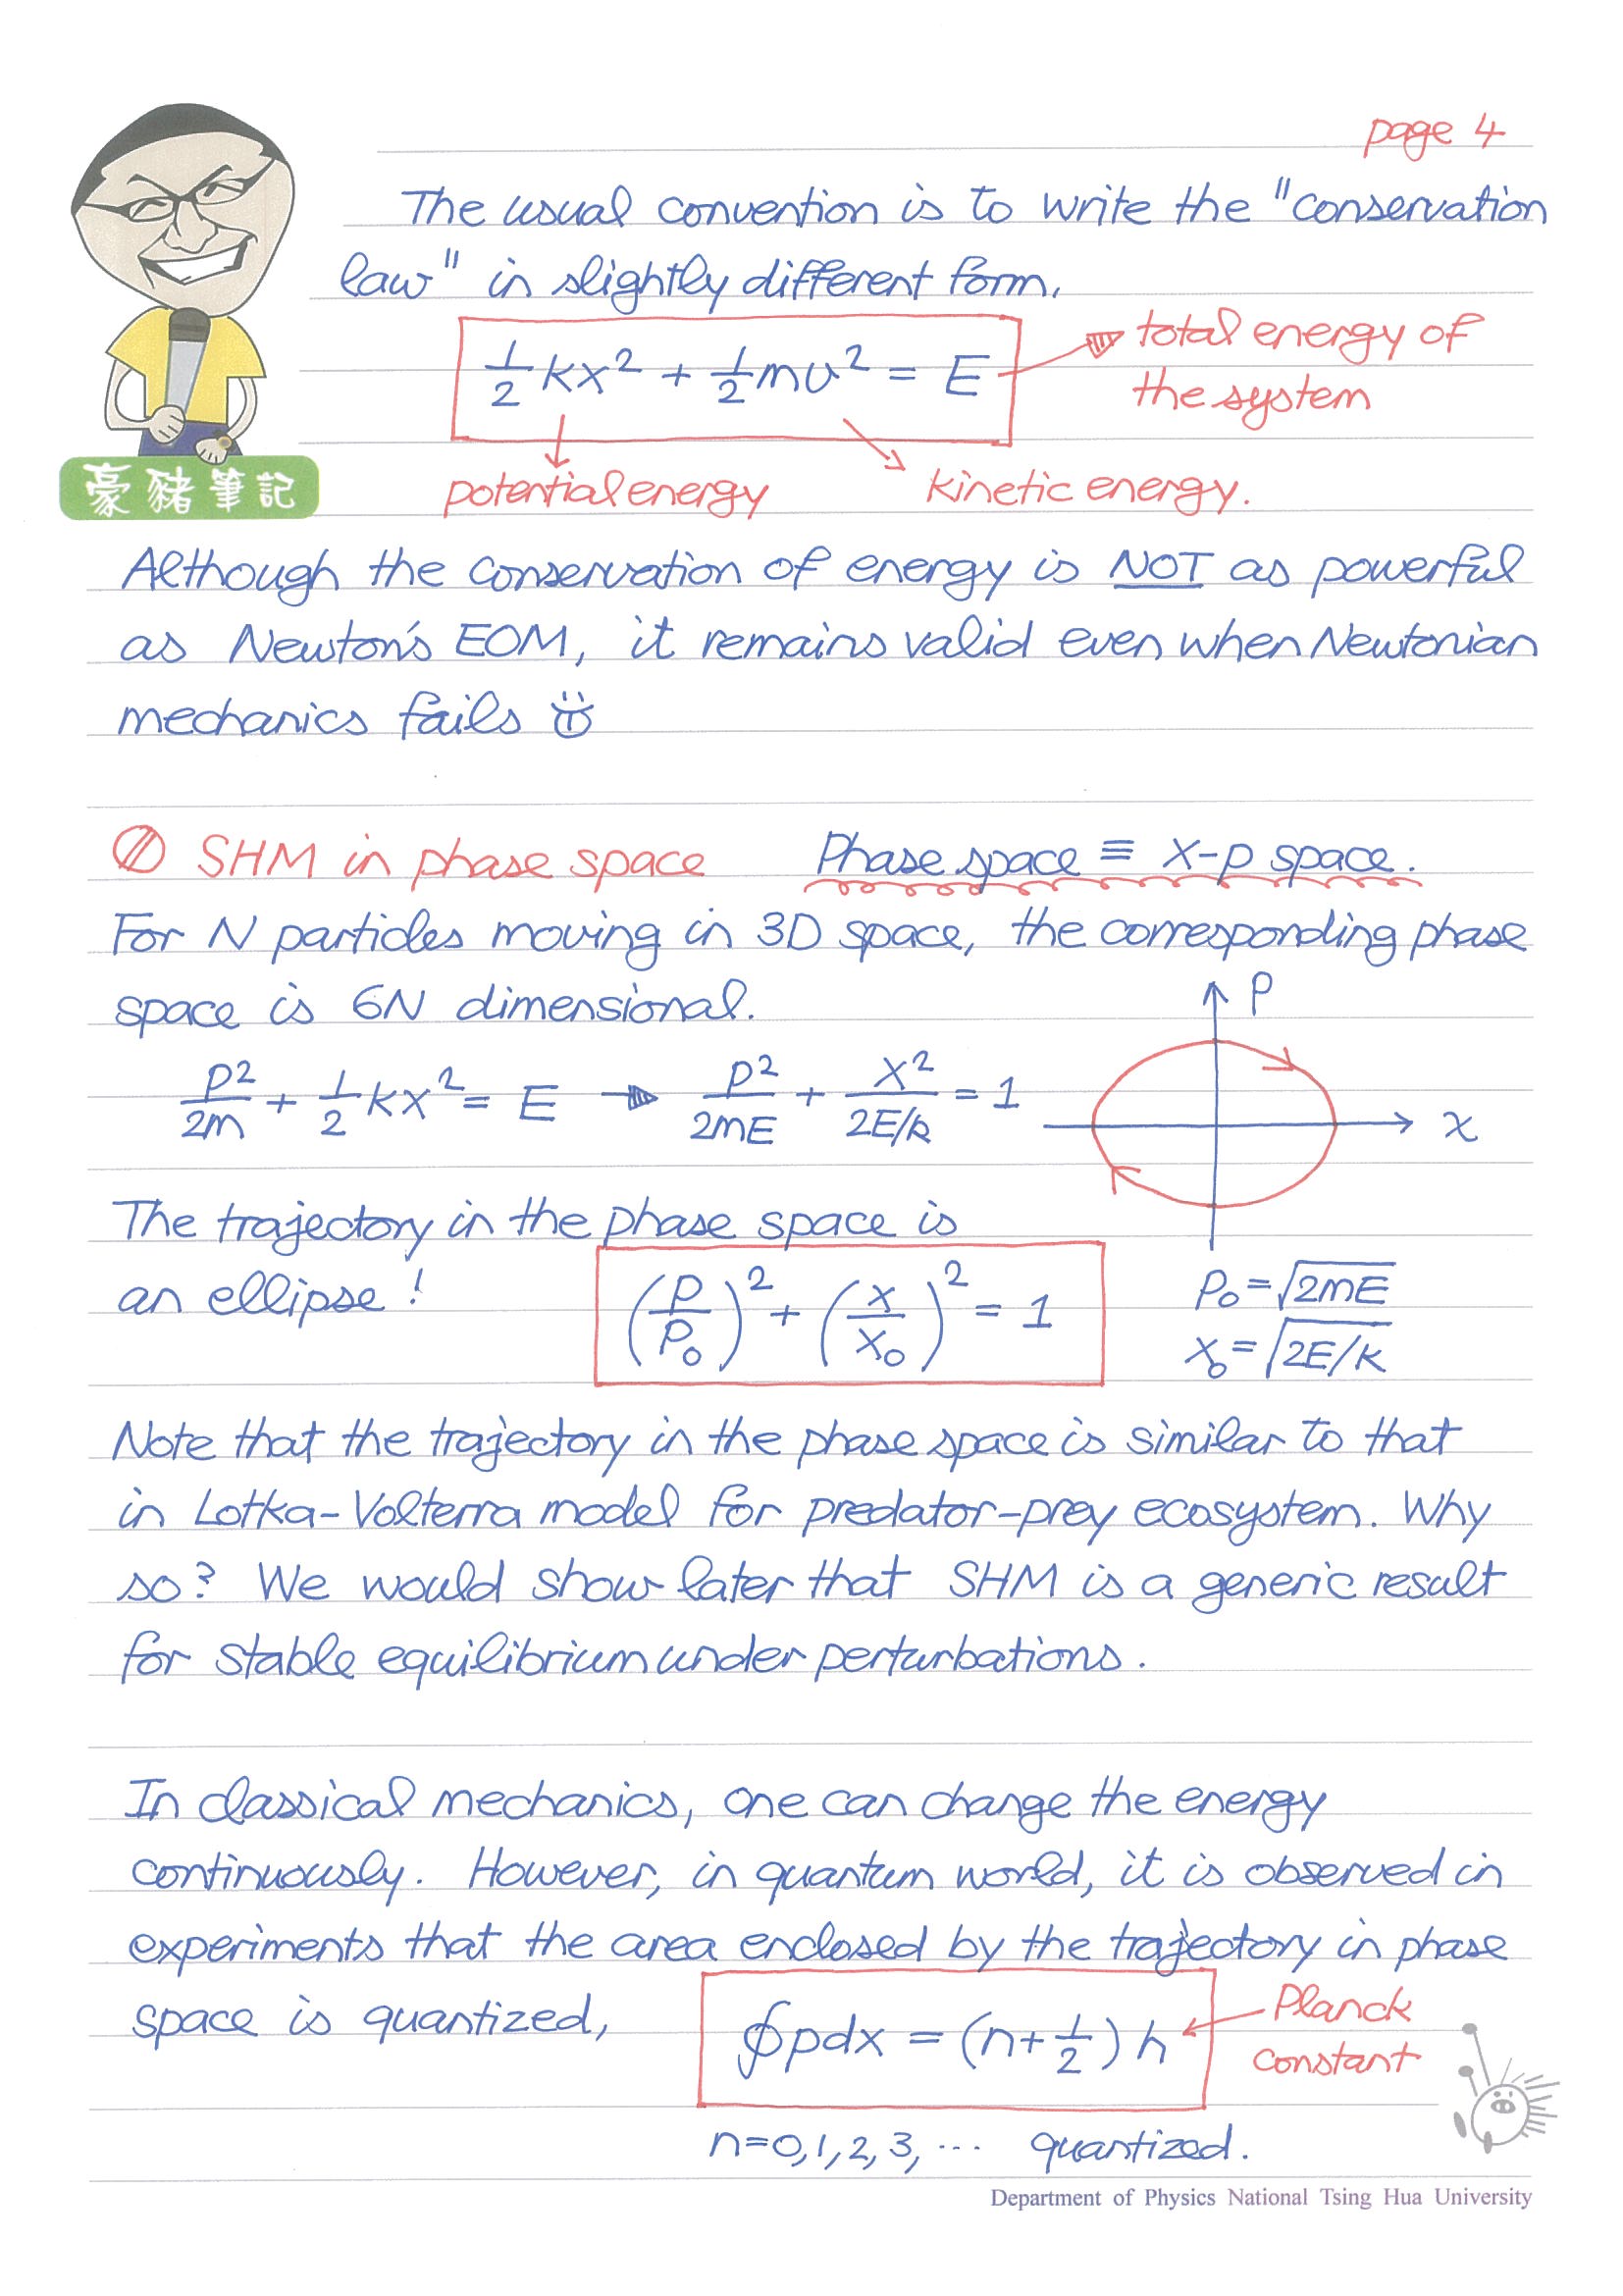 page 4
The usual convention is to write the "conservation
law" in slightly different form,
½kx² + ½mv² = E
total energy of
the system
potential energy
kinetic energy.
豪豬筆記
Although the conservation of energy is NOT as powerful
as Newton's EOM, it remains valid even when Newtonian
mechanics fails
SHM in phase space Phase space ≡ x-p space.
For N particles moving in 3D space, the corresponding phase
space is 6N dimensional.
P
p²/2m + ½kx² = E → p²/2mE + x²/(2E/k) = 1
x
The trajectory in the phase space is
an ellipse! (p/p₀)² + (x/x₀)² = 1
p₀ = √2mE
x₀ = √2E/k
Note that the trajectory in the phase space is similar to that
in Lotka-Volterra model for predator-prey ecosystem. Why
so? We would show later that SHM is a generic result
for stable equilibrium under perturbations.
In classical mechanics, one can change the energy
continuously. However, in quantum world, it is observed in
experiments that the area enclosed by the trajectory in phase
space is quantized, ∮pdx = (n+½)h
Planck
constant
n=0,1,2,3, ... quantized.
Department of Physics National Tsing Hua University